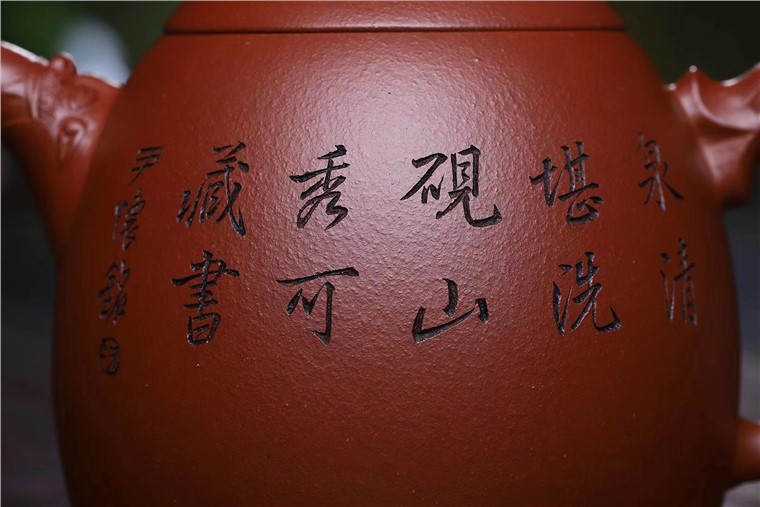 泉清
堪洗
硯山
秀可
藏書
尹 銘